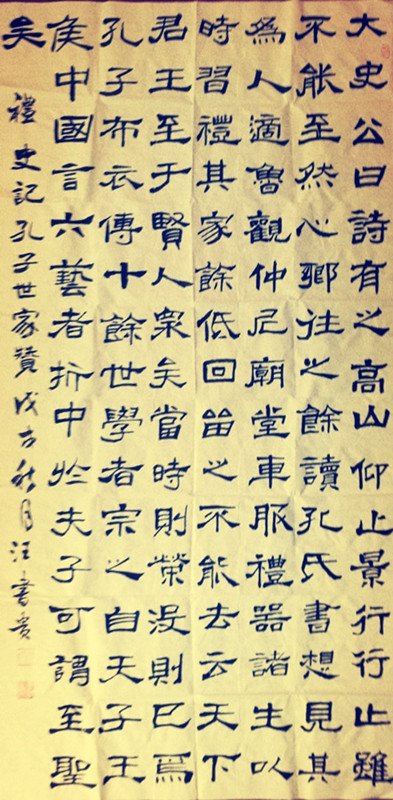 大史公曰詩有之高山仰止景行行止雖
不能至然心鄉往之餘讀孔氏書想見其
為人適魯觀仲尼廟堂車服禮器諸生以
時習禮其家餘低回留之不能去云天下
君王至于賢人眾矣當時則榮沒則已焉
孔子布衣傳十餘世學者宗之自天子王
侯中國言六藝者折中於夫子可謂至聖
矣
禮史記孔子世家贊秋月汪書貴